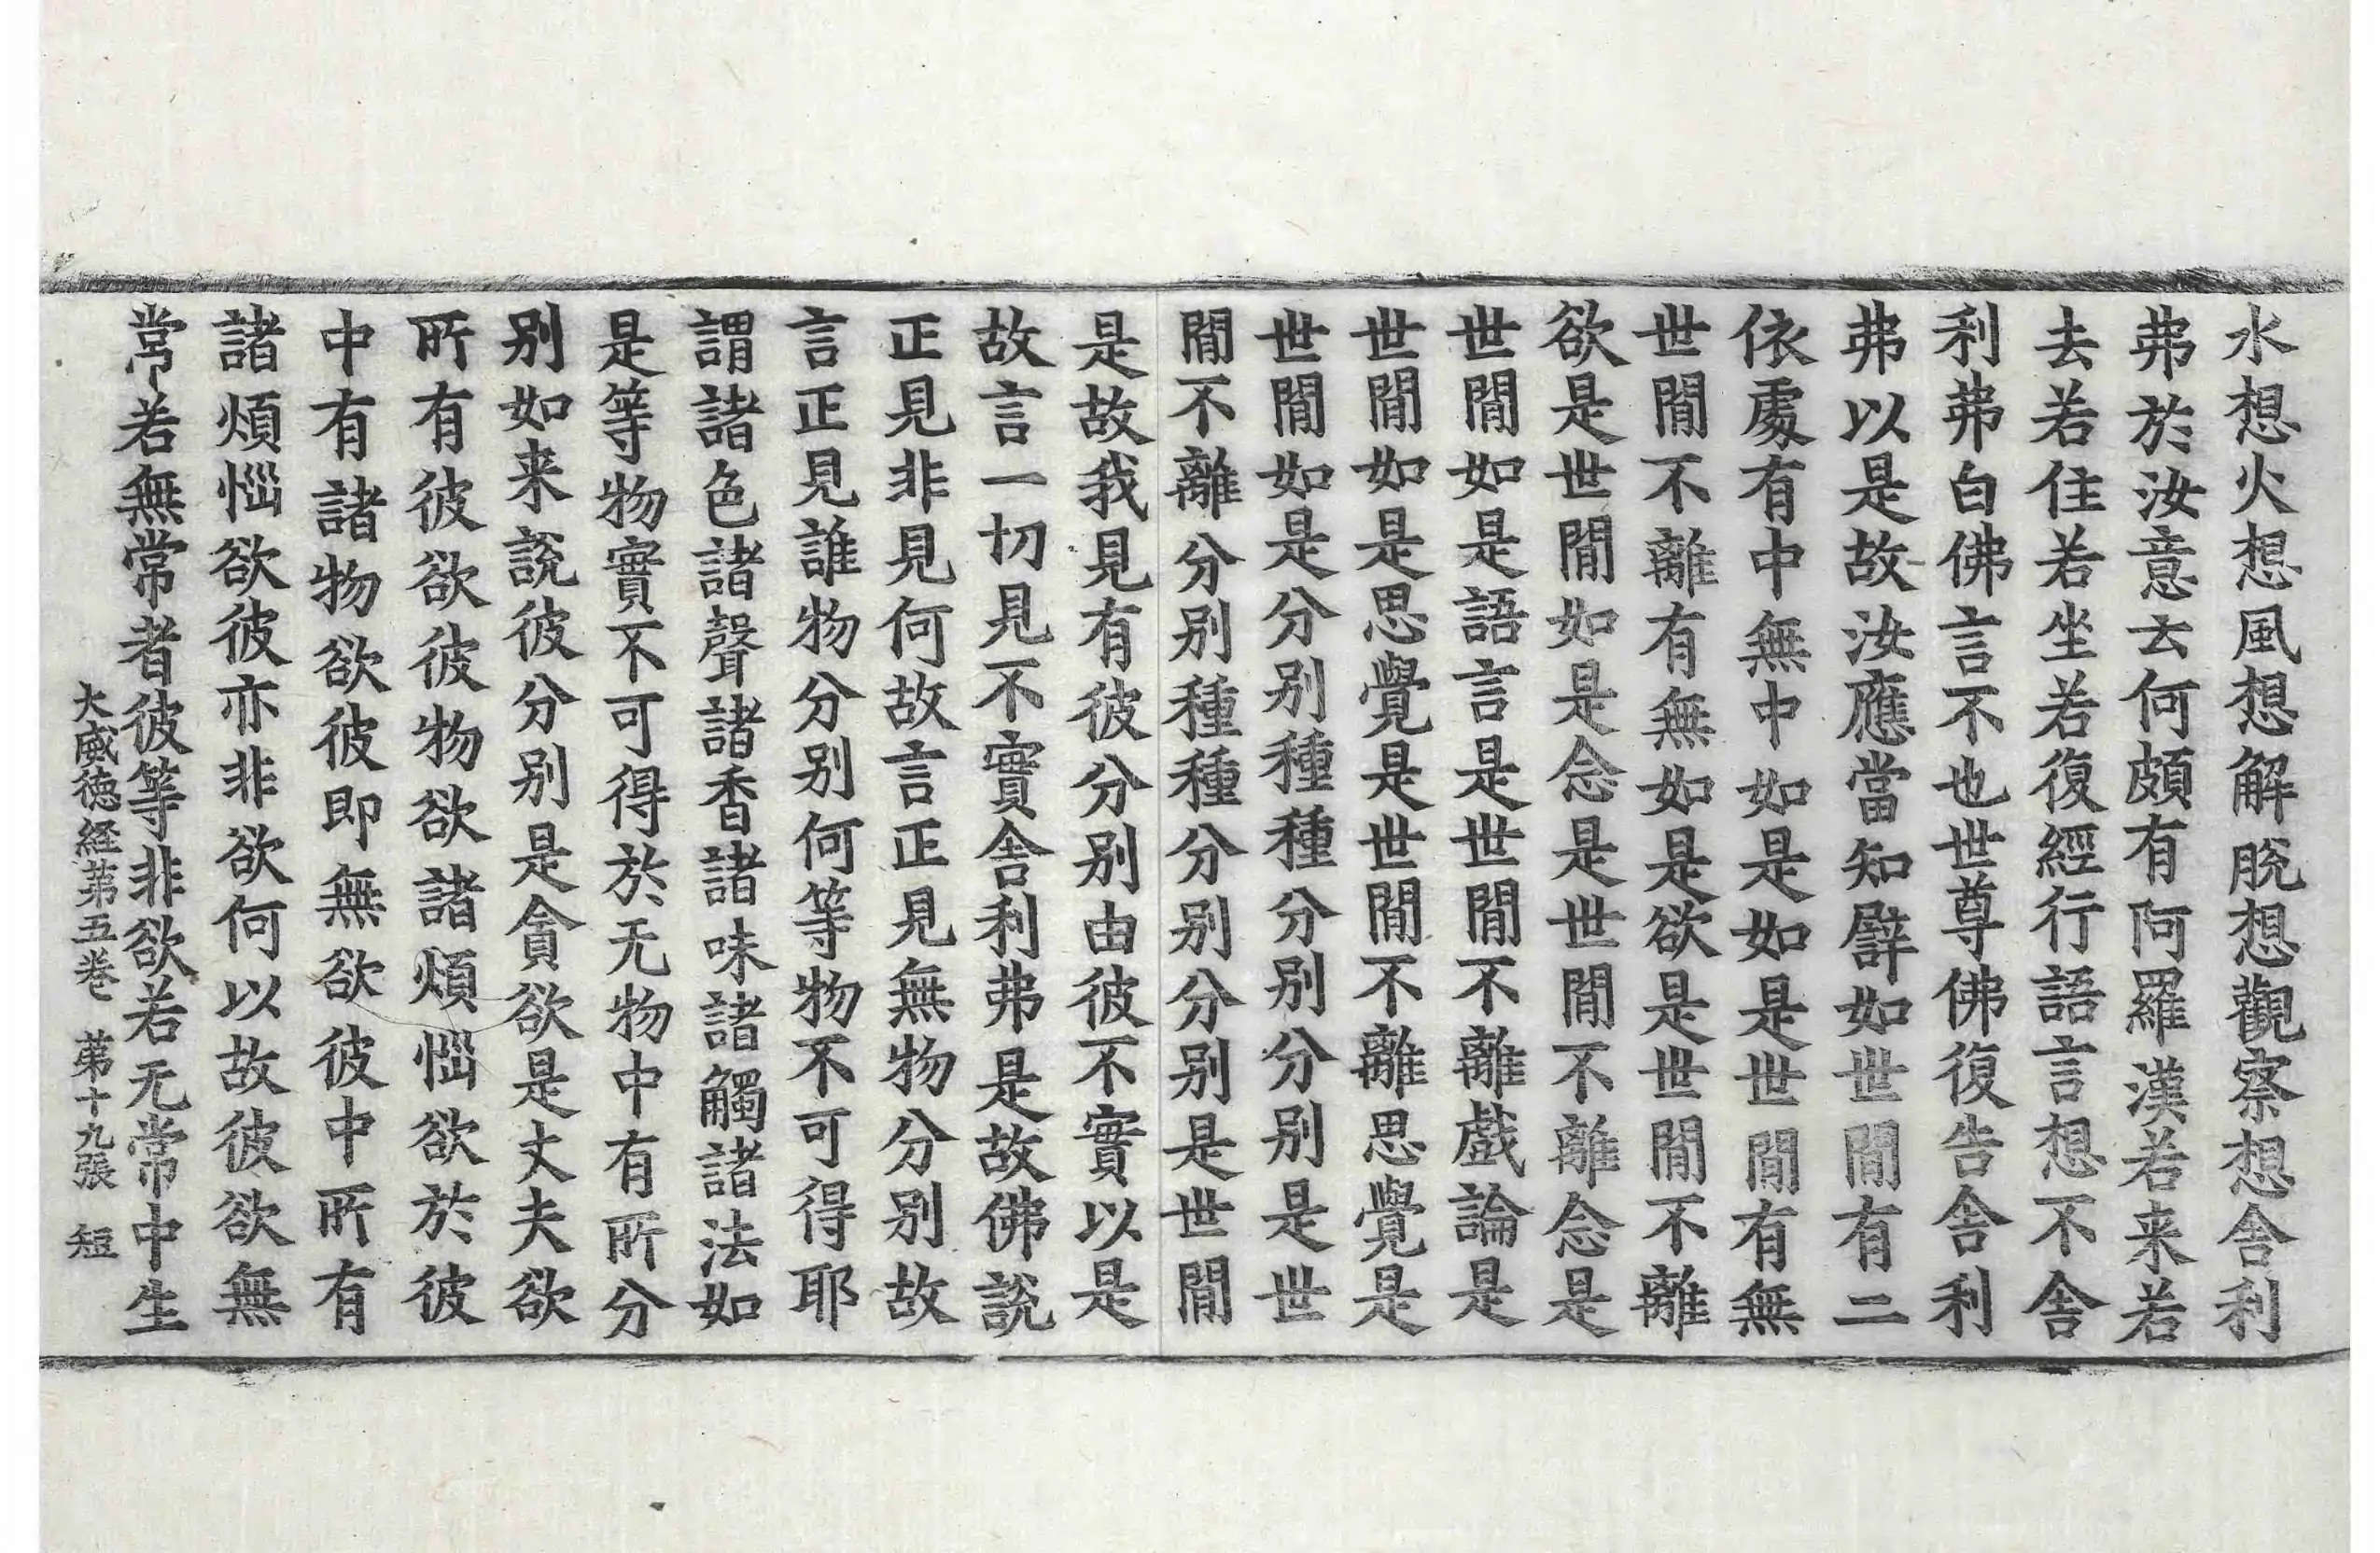 水想火想風想解脫想觀察想舎利
弗於汝意云何頗有阿羅漢若来若
去若住若坐若復經行語言想不舎
利弗白佛言不也世尊佛復告舎利
弗以是故汝應當知譬如世閒有二
依處有中無中如是如是世閒有無
世閒不離有無如是欲是世閒不離
欲是世閒如是念是世閒不離念是
世閒如是語言是世閒不離戲論是
世閒如是思覺是世閒不離思覺是
世閒如是分別種種分別分別是世
閒不離分別種種分別分別是世閒
是故我見有彼分別由彼不實以是
故言一切見不實舎利弗是故佛說
正見非見何故言正見無物分別故
言正見誰物分別何等物不可得耶
謂諸色諸聲諸香諸味諸觸諸法如
是等物實不可得於无物中有所分
別如来說彼分別是貪欲是丈夫欲
所有彼欲彼物欲諸煩惱欲於彼
中有諸物欲彼即無欲彼中所有
諸煩惱欲彼亦非欲何以故彼欲無
常若無常者彼等非欲若无常中生
大威徳経苐五巻　苐十九張　短